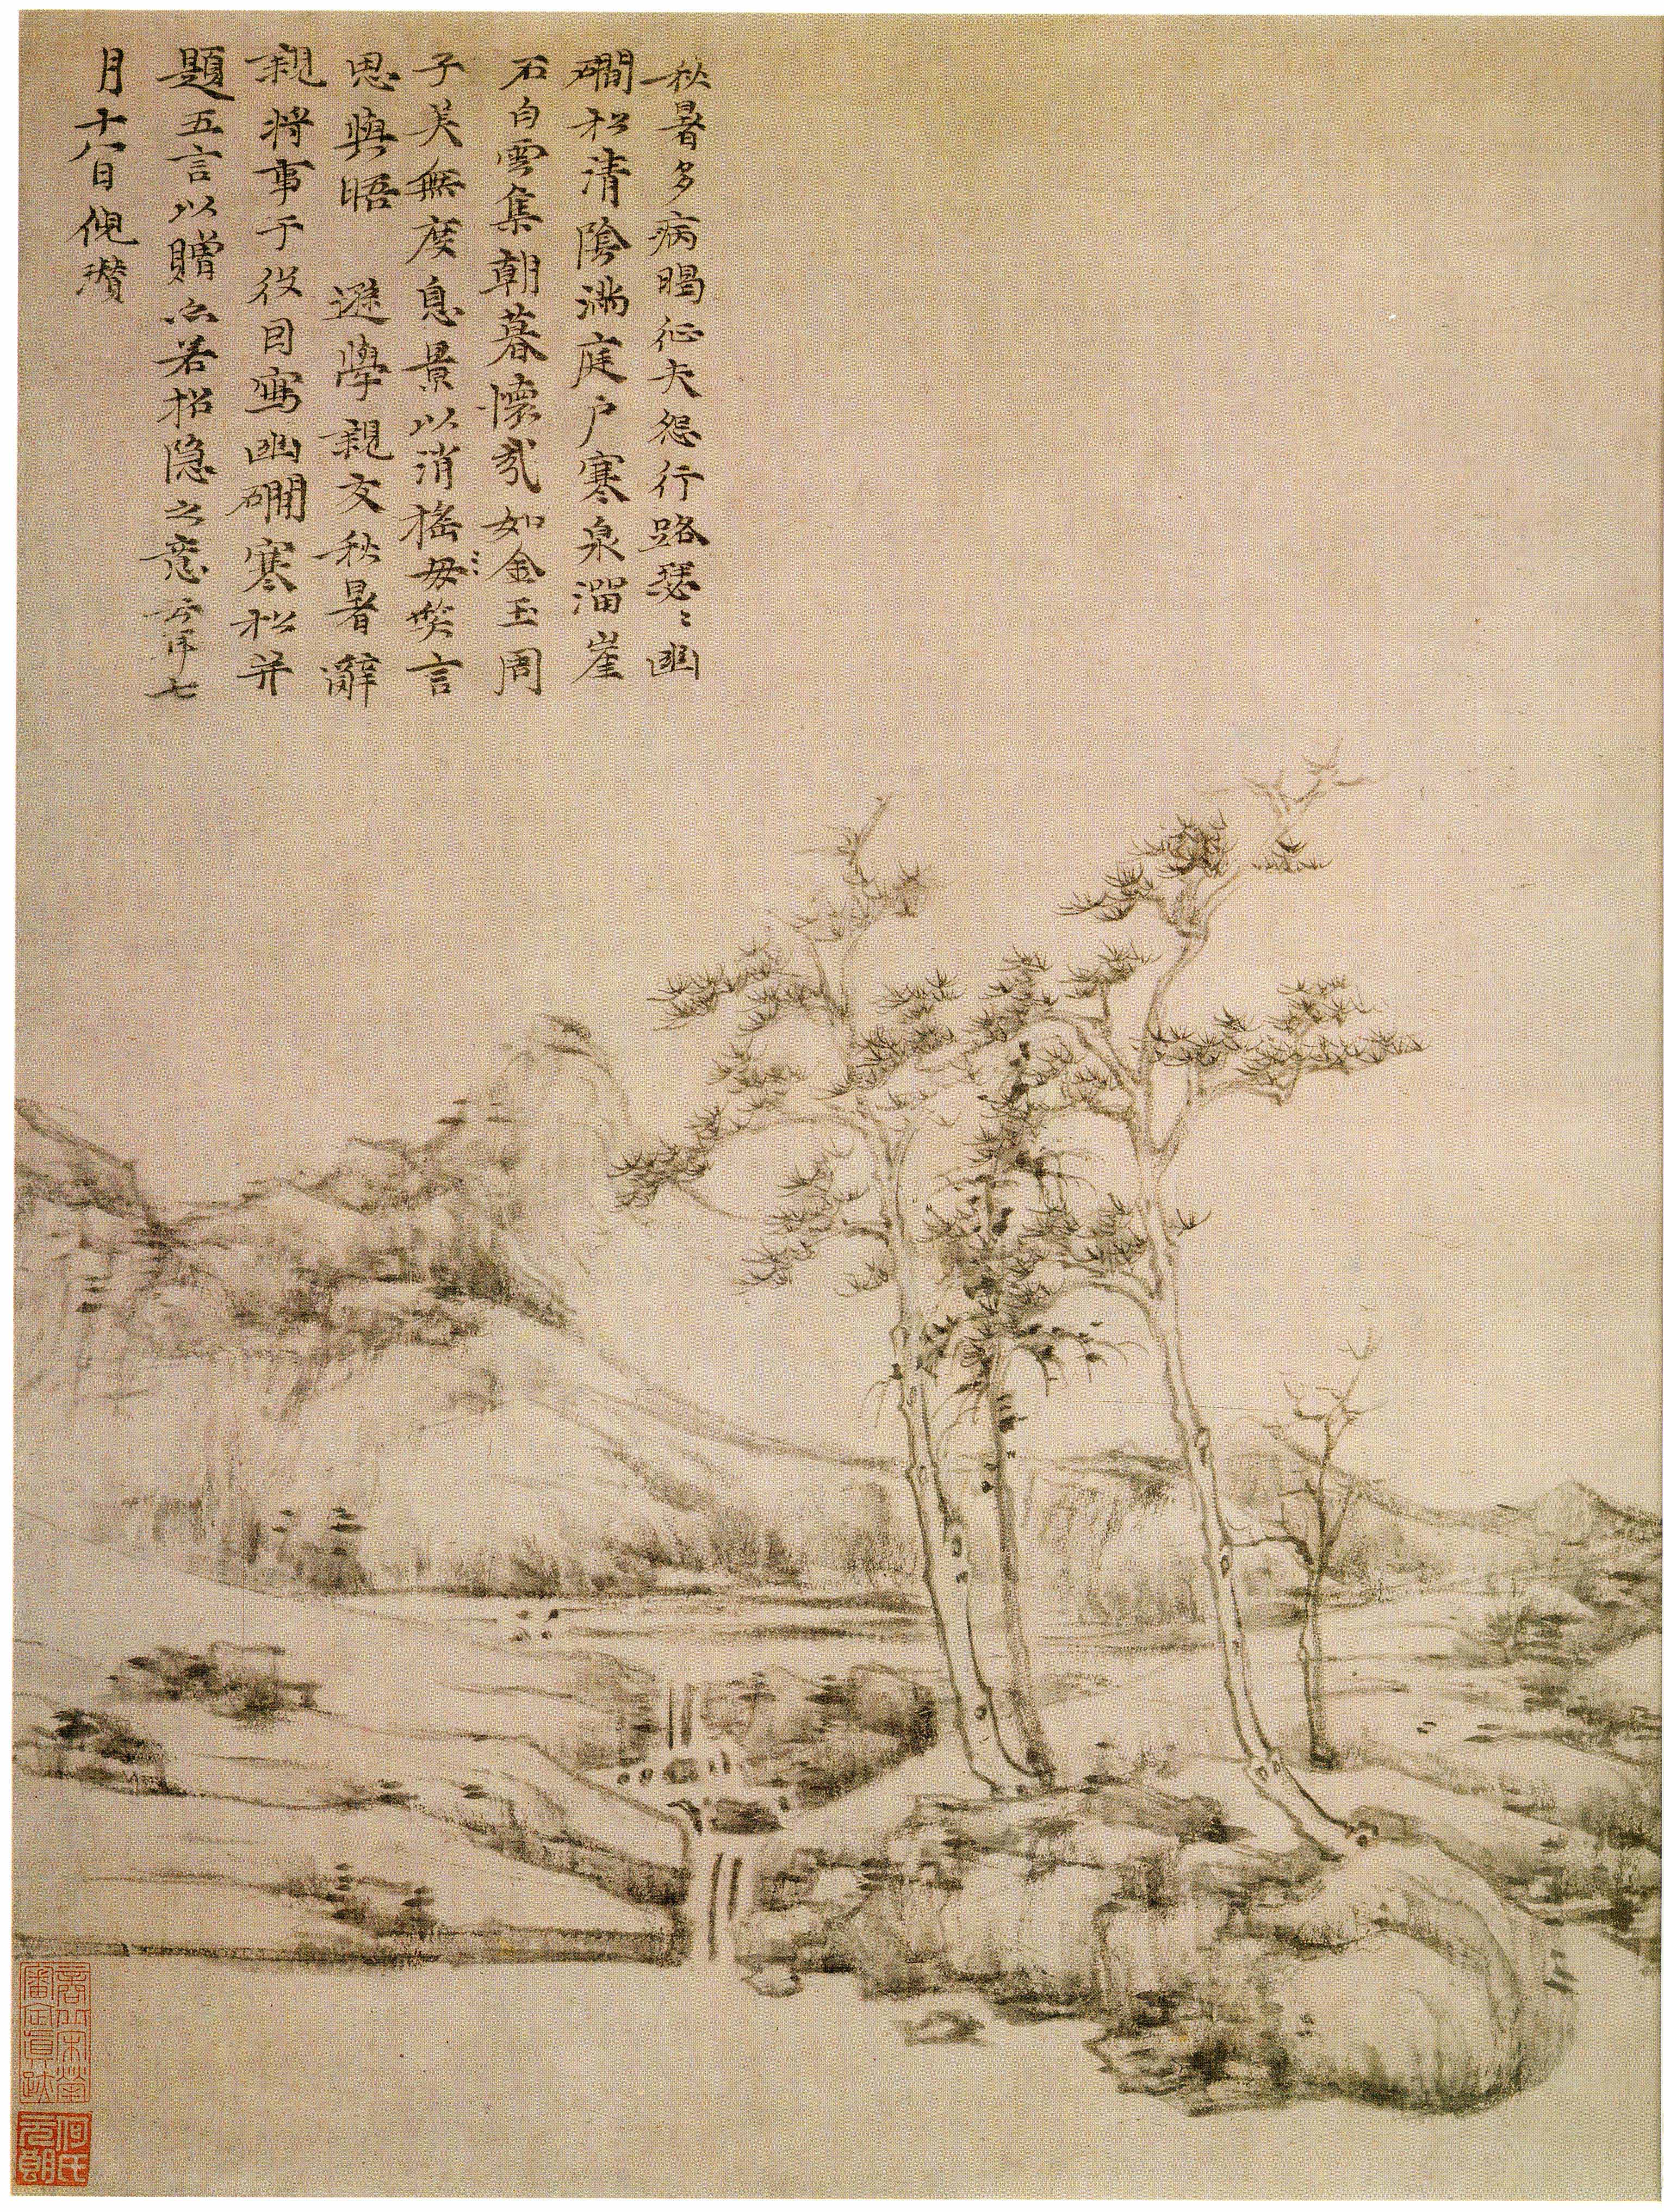 秋暑多病暍征夫怨行路瑟〻幽
磵松清陰滿庭户寒泉溜崖
石白雲集朝暮懷哉如金玉周
子美無度息景以消摇毋笑言
思與晤 遜學親友秋暑辭
親將事于役因寫幽磵寒松并
題五言以贈亦若招隐之意云年七
月十八日倪瓚
商丘宋犖
審定真跡
何氏
元朗